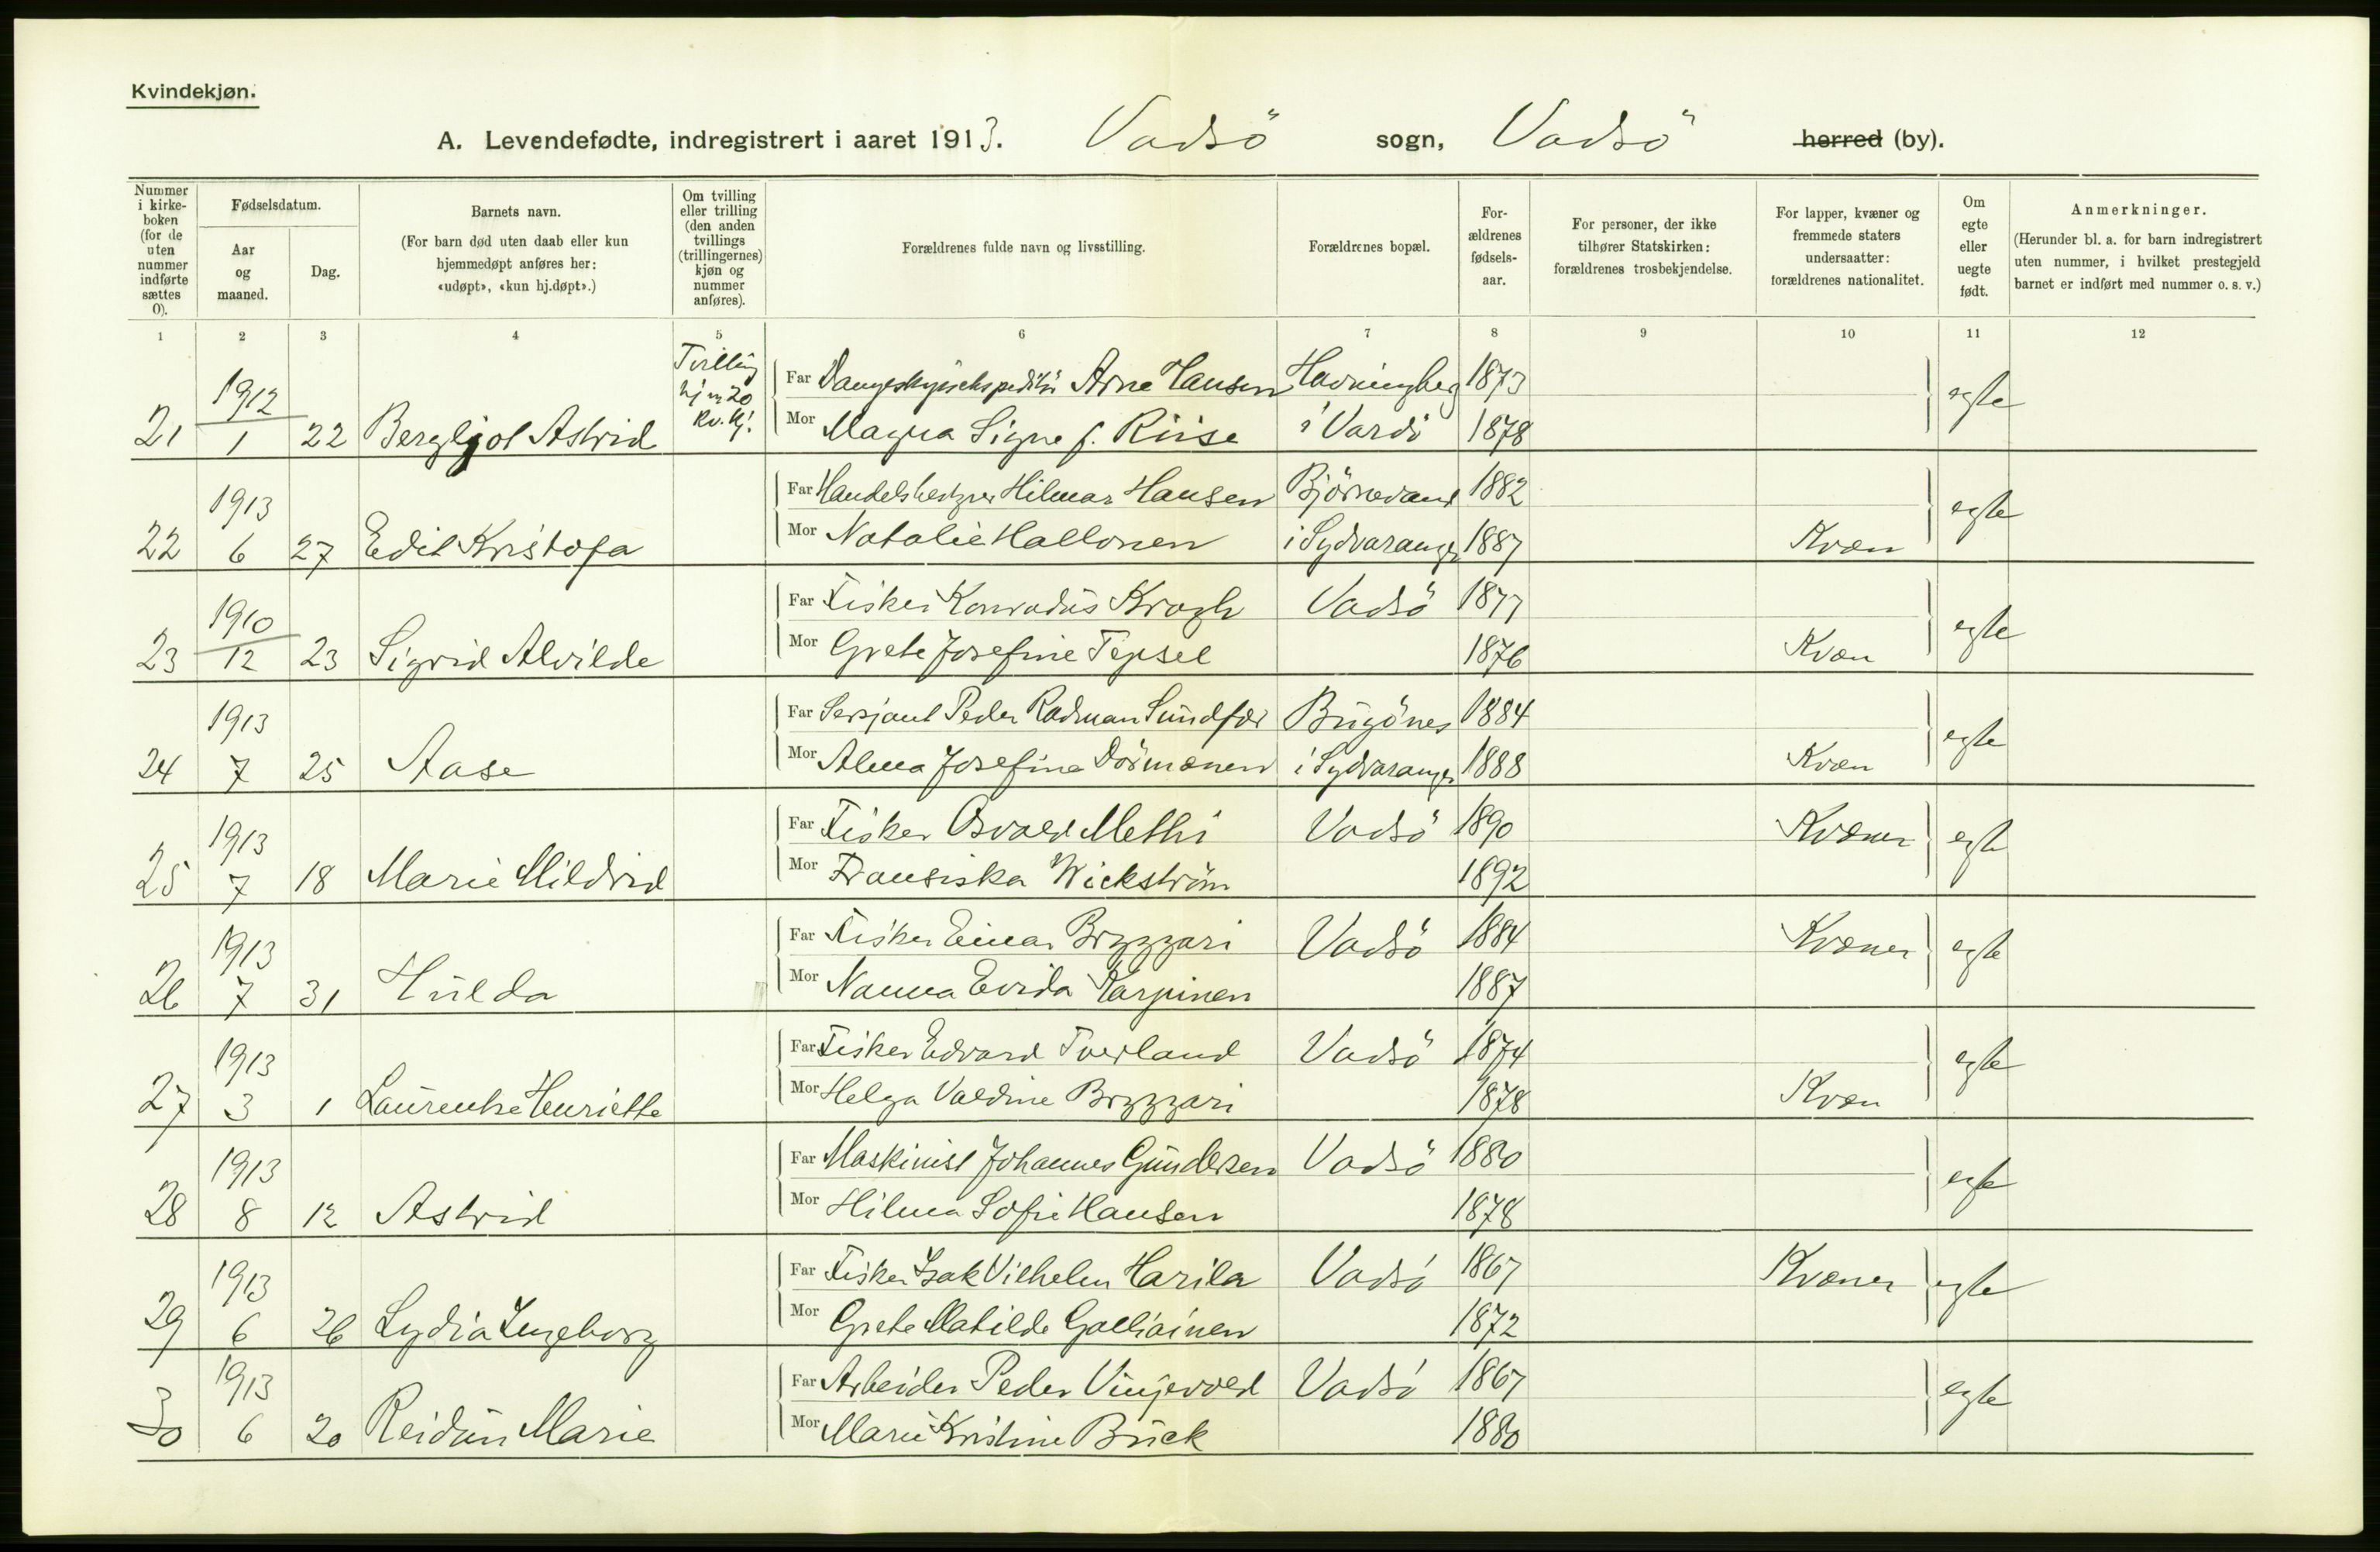 Kvindekjøn.
A. Levendefødte, indregistrert i aaret 1913. Vadsö sogn, Vadsö herred (by).
Nummer i kirke-boken (for de uten nummer indførte sættes 0).
Fødselsdatum.
Aar og maaned.
Dag.
Barnets navn.
(For barn død uten daab eller kun hjemmedøpt anføres her: «udøpt», «kun hj.døpt».)
Om tvilling eller trilling (den anden tvillings (trillingernes) kjøn og nummer anføres).
Forældrenes fulde navn og livsstilling.
Forældrenes bopæl.
For-ældrenes fødsels-aar.
For personer, der ikke tilhører Statskirken: forældrenes trosbekjendelse.
For lapper, kvæner og fremmede staters undersaatter: forældrenes nationalitet.
Om egte eller uegte født.
Anmerkninger.
(Herunder bl. a. for barn indregistrert uten nummer, i hvilket prestegjeld barnet er indført med nummer o. s. v.)
1 2 3 4 5 6 7 8 9 10 11 12
Tvilling
Far Arne Hansen Havningberg 1873
21 1912 1 22 Bergljot Astrid Kv. Kj. egte
Mor Magna Signe f. Riise i Vardö 1878
Far Hilmar Hansen Björnevand 1882
22 1913 6 27 Edit Kristofa egte
Mor Natalie Hallonen i Sydvaranger 1887 Kvæn
Far Fisker Konradus Krogh Vadsö 1877
23 1910 12 23 Sigrid Alvilde egte
Mor Grete Josefine Tepsel 1876 Kvæn
Far Sersjant Peder Radman Sundfær Bugönes 1884
24 1913 7 25 Aase egte
Mor Alma Josefine Dörmænen i Sydvaranger 1888 Kvæn
Far Fisker Osvald Methi Vadsö 1890 Kvæner
25 1913 7 18 Marie Mildrid egte
Mor Fransiska Wickström 1892
Far Fisker Einar Bryzzari Vadsö 1884 Kvæner
26 1913 7 31 Hulda egte
Mor Nanna Evida Karpinen 1887
Far Fisker Edvard Tverland Vadsö 1874
27 1913 3 1 Laurentse Henriette egte
Mor Helga Valdine Bryzzari 1878 Kvæn
Far Maskinist Johannes Gundersen Vadsö 1880
28 1913 8 12 Astrid egte
Mor Hilma Sofie Hansen 1878
Far Fisker Isak Vilhelm Harila Vadsö 1867 Kvæner
29 1913 6 26 Lydia Ingeborg egte
Mor Grete Matilde Galliainen 1872
Far Arbeider Peder Vinjevold Vadsö 1867
30 1913 6 20 Reidun Marie egte
Mor Marie Kristine Buck 1880